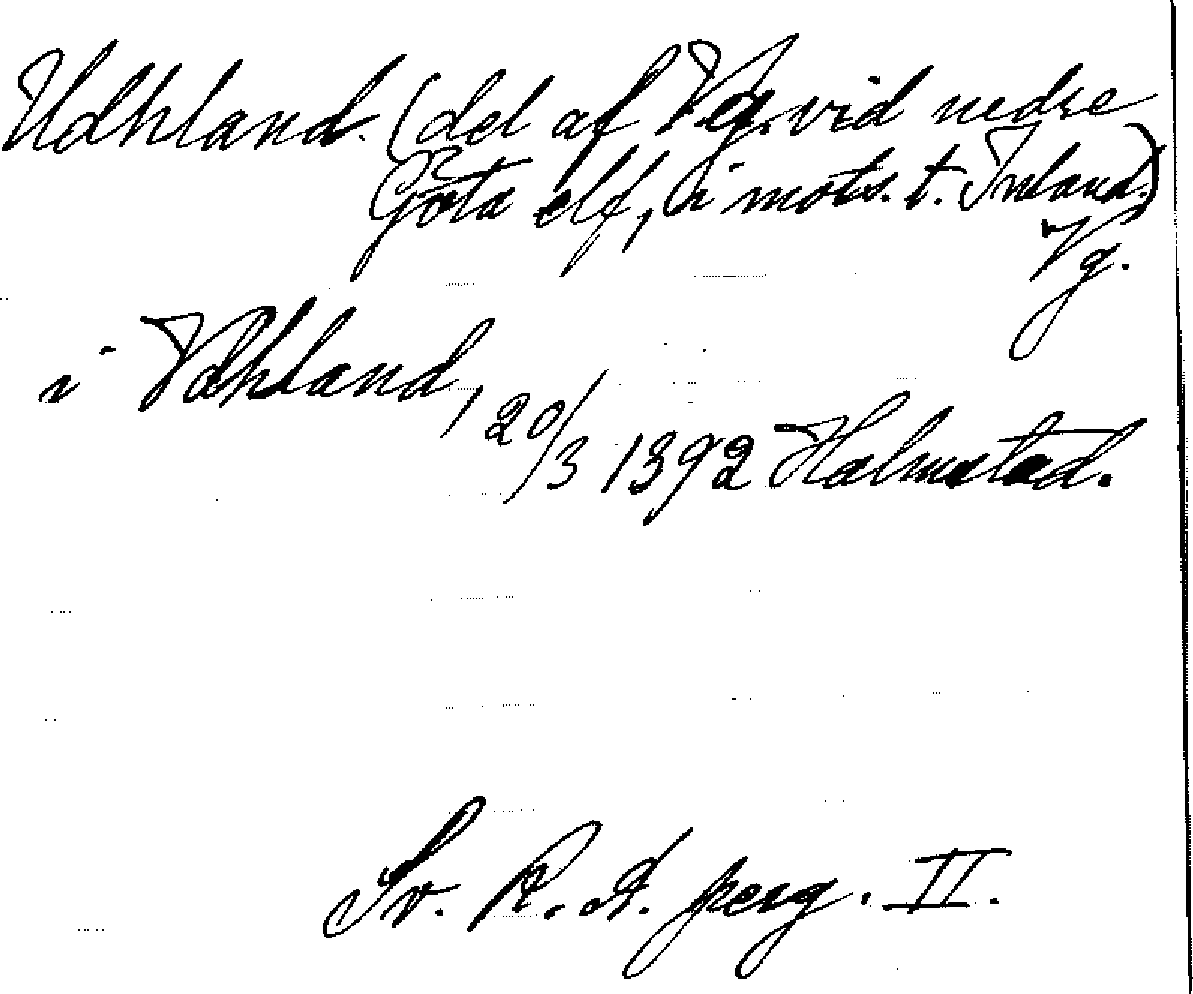 Udhland. (del af Vg. vid nedre
Göta elf, i mots. t. Inland.)
Vg.
i Vdhland, 20/3 1392 Halmstad.
Sv. R. A. perg. II.